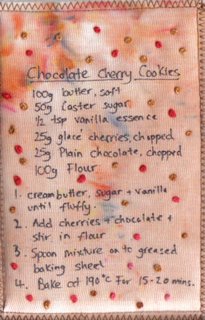 Chocolate Cherry Cookies
100g butter, soft
50g Caster sugar
½ tsp vanilla essence
25g glacé cherries, chopped
25g Plain chocolate, chopped
100g Flour
1. cream butter, sugar + vanilla
until fluffy.
2. Add cherries + chocolate +
stir in flour
3. Spoon mixture on to greased
baking sheet
4. Bake at 190°C for 15-20 mins.